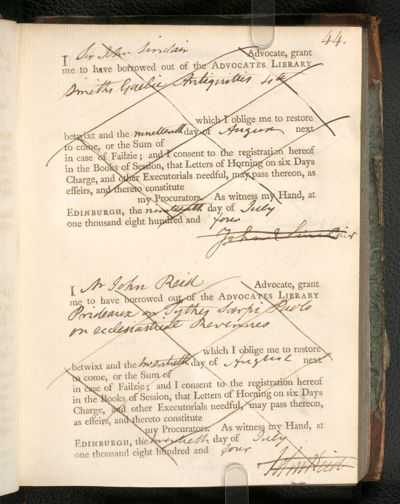 44.
I Sir John Sinclair Advocate, grant
me to have borrowed out of the ADVOCATES LIBRARY
Smiths Gaelic Antiquities 4to
which I oblige me to restore
betwixt and the nineteenth day of August next
to come, or the Sum of
in case of Failzie; and I consent to the registration hereof
in the Books of Session, that Letters of Horning on six Days
Charge, and other Executorials needful, may pass thereon, as
effeirs, and thereto constitute
my Procurators. As witness my Hand, at
EDINBURGH, the nineteenth day of July
one thousand eight hundred and four
John Sinclair
I Mr John Reid Advocate, grant
me to have borrowed out of the ADVOCATES LIBRARY
Prideaux on Tythes Sarpi Paolo
on ecclesiastical Revenues
which I oblige me to restore
betwixt and the twentieth day of August next
to come, or the Sum of
in case of Failzie; and I consent to the registration hereof
in the Books of Session, that Letters of Horning on six Days
Charge, and other Executorials needful, may pass thereon,
as effeirs, and thereto constitute
my Procurators. As witness my Hand, at
EDINBURGH, the twentieth day of July
one thousand eight hundred and four
John Reid